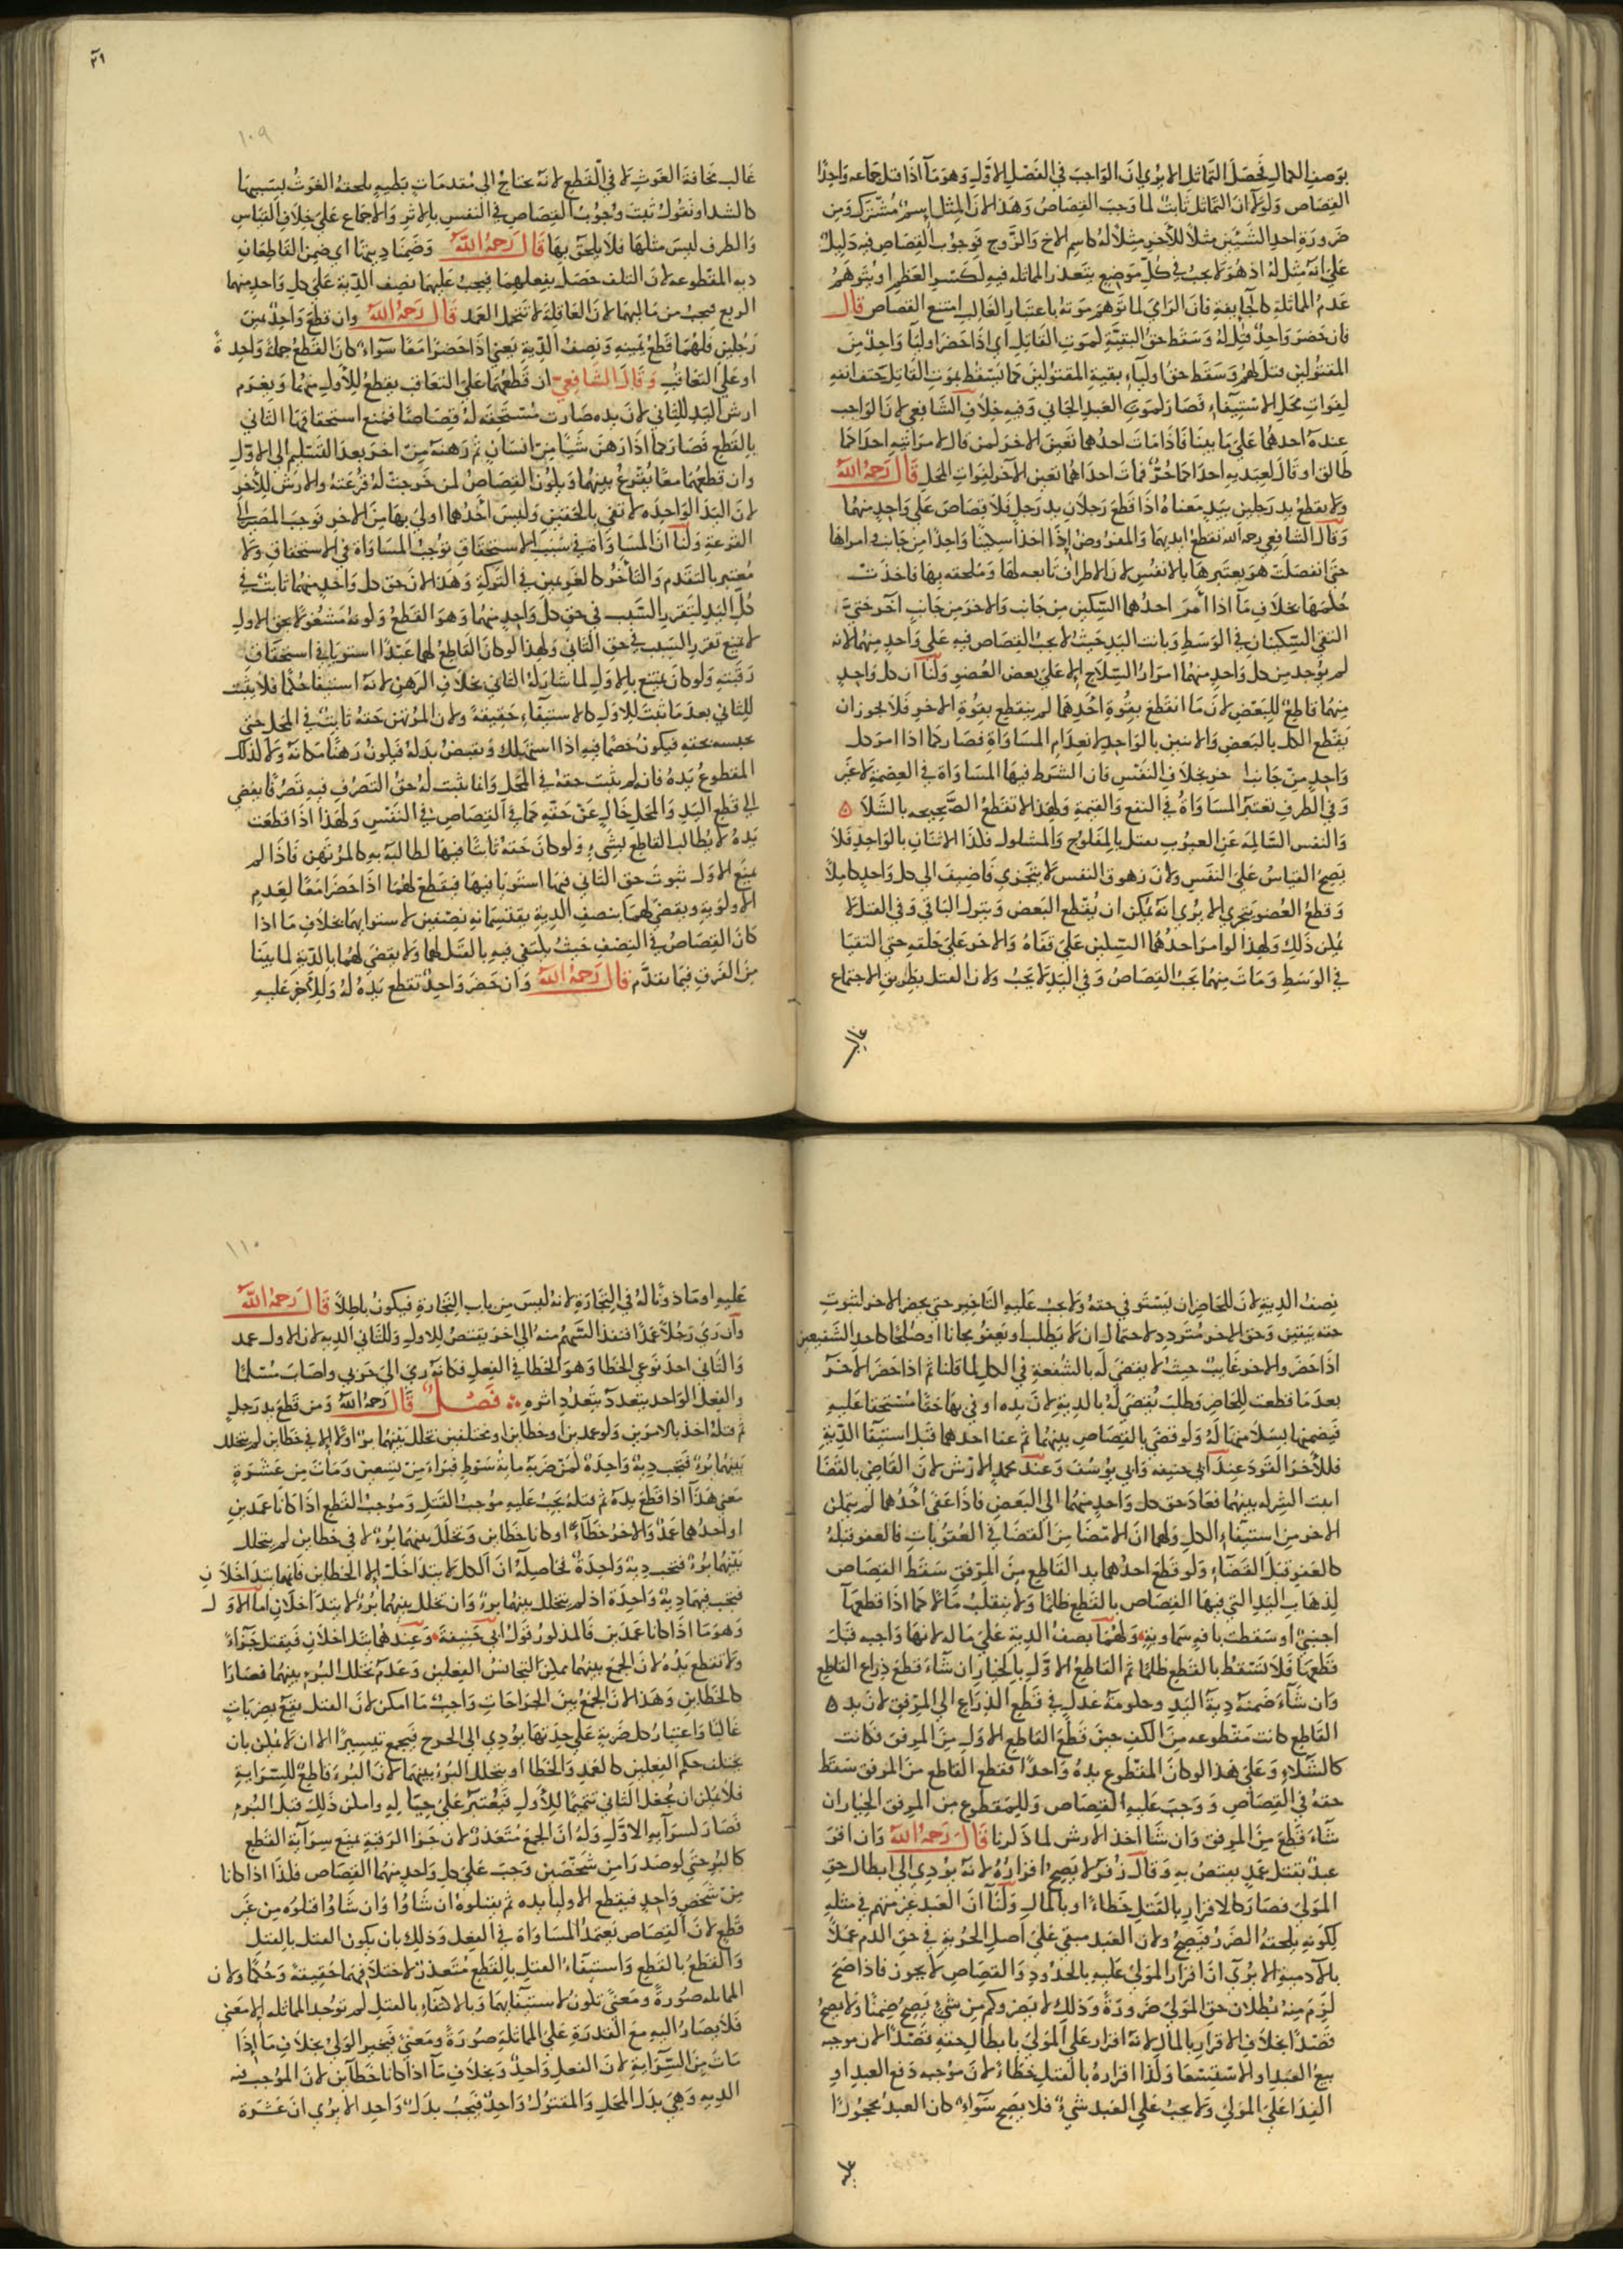 بوصف الكمال فحصل التماثل الا يرى ان الواجب في الفصل الاول وهو ما اذا قتل جماعه واحدا
القصاص ولولا ان التماثل ثابت لما وجب القصاص وهذا لان المثل اسم مشترك ومن
ضرورة احد الشيئين مثلا للاخر مثلا له كاسم الاخ والزوج فوجوب القصاص فيه دليل
على انه مثل له اذ هو لا يجب في كل موضع يتعذر المماثله فيه لكسر العظم او يتوهم
عدم المماثلة كالجايفة فان الراي لما توهم موته باعتبار الغالب امتنع القصاص قال
فان حضر واحد قتل له وسقط حق البقية لموت القاتل اي اذا حضر اوليا واحد من
المقتولين قتل لهم وسقط حق اولياء بقية المقتولين كما تسقط بموت القاتل حتف انفه
لفوات محل الاستيفاء فصار لموت العبد الجاني وفيه خلاف الشافعي لان الواجب
عنده احدهما على ما بينا فاذا مات احدهما تعين الاخر لمن قال لامراتيه احداكما
طالق او قال لعبديه احدكما حر فمات احداهما تعين الاخر لفوات المحل قال رحمه الله
ولا يقطع يد رجلين بيد معناه اذا قطع رجلان يد رجل فلا قصاص على واحد منهما
وقال الشافعي رحمه الله تقطع ايديهما والمفروض اذا اخذا سكينا واحدا من جانب وامراها
حتى انفصلت هو يعتبرها بالانفس لان الاطراف تابعه لها وملحقه بها فاخذت
حكمها بخلاف ما اذا امر احدهما السكين من جانب والاخر من جانب اخر حتى
التقى السكينان في الوسط وبانت اليد حيث لا يجب القصاص فيه على واحد منهما لانه
لم يوجد من كل واحد منهما امرار السلاح الا على بعض العضو ولنا ان كل واحد
منهما قاطع للبعض لان ما انقطع بقوة احدهما لم ينقطع بقوة الاخر فلا يجوز ان
يقطع الكل بالبعض والاثنين بالواحد لانعدام المساواة فصار كما اذا امر كل
واحد من جانب اخر بخلاف النفس فان الشرط فيها المساواة في العصمة لا غير
وفي الطرف تعتبر المساواة في النفع والقيمة ولهذا لا تقطع الصحيحه بالشلا
والنفس السالمه عن العيوب تقتل بالمفلوج والمشلول فلذا الاثنان بالواحد فلا
يصح القياس على النفس ولان زهوق النفس لا يتجزى فاضيف الى كل واحد كاملا
وقطع العضو يتجزى الا يرى انه يمكن ان يقطع البعض ويترك الباقي وفي القتل لا
يمكن ذلك ولهذا لو امر احدهما السكين على قفاه والاخر على حلقه حتى التقيا
في الوسط ومات منهما يجب القصاص وفي اليد لا يجب ولان القتل بطريق الاجتماع
غالب
١٠٩
غالب مخافة الغوث لا في القطع لانه يحتاج الى مقدمات بطيه يلحقه الغوث بسببها
كالشد او نقول ثبت وجوب القصاص في النفس بالاثر والاجماع على خلاف القياس
والطرف ليس مثلها فلا يلحق بها قال رحمه الله وضمنا ديتها اي ضمن القاطعان
ديه المقطوعه لان التلف حصل بفعلهما فيجب عليهما نصف الدية على كل واحد منهما
الربع فيجب من ماليهما لان العاقلة لا تتحمل العمد قال رحمه الله وان قطع واحد يمين
رجلين فلهما قطع يمينه ونصف الدية يعني اذا حضرا معا سواء كان القطع جملة واحدة
او على التعاقب وقال الشافعي ان قطعهما على التعاقب يقطع للاول منهما ويغرم
ارش اليد للثاني لان يده صارت مستحقه له قصاصا فمنع استحقاقها الثاني
بالقطع فصار كما اذا رهن شيا من انسان ثم رهنه من اخر بعد التسليم الى الاول
وان قطعهما معا يقرع بينهما ويكون القصاص لمن خرجت له قرعته والارش للاخر
لان اليد الواحده لا تفي بالحقين وليس احدهما اولى بها من الاخر فوجب المصير الى
القرعة ولنا ان المساواة في سبب الاستحقاق توجب المساواة في الاستحقاق ولا
معتبر بالتقدم والتاخر كالغريمين في التركة وهذا لان حق كل واحد منهما ثابت في
كل اليد ليتقرر السبب في حق كل واحد منهما وهو القطع ولونه مشغولا بحق الاول
لا يمنع تقرر السبب في حق الثاني ولهذا لو كان القاطع لهما عبدا استويا في استحقاق
رقبته ولو كان يمتنع بالاول لما شاركه الثاني بخلاف الرهن لانه استيفا حكما فلا يثبت
للثاني بعد ما ثبت للاول كالاستيفاء حقيقة ولان المرتهن حقه ثابت في المحل حتى
حبسه بحقه فيكون خصما فيه اذا استهلك ويقبض بدله فيكون رهنا مكانه ولا كذلك
المقطوع يده فانه لم يثبت حقه في المحل وانما يثبت له حق التصرف فيه تصرفا يفضي
الى قطع اليد والمحل خال عن حقه كما في القصاص في النفس ولهذا اذا قطعت
يده لا يطالب القاطع بشيء ولو كان حقه ثابتا فيها لطالبه به كالمرتهن فاذا لم
يمنع الاول ثبوت حق الثاني فيها استويا فيها فيقطع لهما اذا حضرا معا لعدم
الاولوية ويقضى لهما بنصف الدية يقتسمانه نصفين لاستوايهما بخلاف ما اذا
كان القصاص في النفس حيث يكتفى فيه بالقتل لهما ولا يقضى لهما بالدية لما بينا
من الفرق فيما تقدم قال رحمه الله وان حضر واحد تقطع يده له وللاخر عليه
نصف الدية لان للحاضر ان يستوفي حقه ولا يجب عليه التاخير حتى يحضر الاخر لثبوت
حقه بيقين وحق الاخر متردد لاحتمال ان لا يطلب او يعفو مجانا او صلحا كاحد الشفيعين
اذا حضر والاخر غايب حيث لا يقضى له بالشفعة في الكل لما قلنا ثم اذا حضر الاخر
بعد ما قطعت للحاضر وطلب يقضى له بالدية لان يده اوفى بها حقا مستحقا عليه
فيضمنها لسلامتها له ولو قضى بالقصاص بينهما ثم عفا احدهما قبل استيفا الدية
فللاخر القود عند ابي حنيفه وابي يوسف وعند محمد الارش لان القاضي بالقضا
اثبت الشركه بينهما فعاد حق كل واحد منهما الى البعض فاذا عفى احدهما لم يتمكن
الاخر من استيفاء الكل ولهما ان الامضا من القضا في العقوبات فالعفو قبله
كالعفو قبل القضاء ولو قطع احدهما يد القاطع من المرفق سقط القصاص
لذهاب اليد التي فيها القصاص بالقطع ظلما ولا ينقلب مالا كما اذا قطعها
اجنبي او سقطت بافة سماوية ولهما نصف الدية على ماله لانها واجبه قبل
قطعها فلا تسقط بالقطع ظلما ثم القاطع الاول بالخيار ان شاء قطع ذراع القاطع
وان شاء ضمنه دية اليد وحكومة عدل في قطع الذراع الى المرفق لان يد
القاطع كانت مقطوعه من الكف حين قطع القاطع الاول من المرفق فكانت
كالشلاء وعلى هذا لو كان المقطوع يده واحدا فقطع القاطع من المرفق سقط
حقه في القصاص ووجب عليه القصاص وللمقطوع من المرفق الخيار ان
شاء قطع من المرفق وان شا اخذ الارش لما ذكرنا قال رحمه الله وان اقر
عبد بقتل عمد يقتص به وقال زفر لا يصح اقراره لانه يؤدي الى ابطال حق
المولى فصار كالاقرار بالقتل خطاء او بالمال ولنا ان العبد غير متهم في مثله
لكونه يلحقه الضرر فيصح ولان العبد مبقى على اصل الحرية في حق الدم عملا
بالادمية الا يرى ان اقرار المولى عليه بالحدود والقصاص لا يجوز فاذا صح
لزم منه بطلان حق المولى ضرورة وذلك لا يضر وكم من شيء يصح ضمنا ولا يصح
قصدا بخلاف الاقرار بالمال لانه اقرار على المولى بابطال حقه قصدا لان موجبه
بيع العبد او الاستسعا وكذا اقراره بالقتل خطاء لان موجبه دفع العبد او
الفدا على المولى ولا يجب على العبد شيء فلا يصح سواء كان العبد محجورا
عليه
١١٠
عليه او ماذونا له في التجارة لانه ليس من باب التجارة فيكون باطلا قال رحمه الله
وان رمى رجلا عمدا فنفذ السهم منه الى اخر يقتص للاول وللثاني الديه لان الاول عمد
والثاني احد نوعي الخطا وهو الخطا في الفعل فكانه رمى الى حربي واصاب مسلما
والفعل الواحد يتعدد بتعدد اثره فصل قال رحمه الله ومن قطع يد رجل
ثم قتله اخذ بالامرين ولو عمدين او خطاين او مختلفين تخلل بينهما برؤ اولا الا في خطاين لم يتخلل
بينهما برؤ فتجب دية واحدة كمن ضربه ماية سوط فبراء من تسعين ومات من عشرة
معنى هذا اذا قطع يده ثم قتله يجب عليه موجب القتل وموجب القطع اذا كانا عمدين
او احدهما عمد والاخر خطاء او كانا خطاين وتخلل بينهما برؤ لا في خطاين لم يتخلل
بينهما برؤ فتجب دية واحدة فحاصله ان الكل لا يتداخل الا الخطاين فانهما يتداخلان
فيجب فيهما دية واحدة اذ لم يتخلل بينهما برؤ وان تخلل بينهما برؤ لا يتداخلان اما الاول
وهو ما اذا كانا عمدين فالمذكور قول ابي حنيفة وعندهما يتداخلان فيقتل جزاء
ولا تقطع يده لان الجمع بينهما ممكن لتجانس الفعلين وعدم تخلل البرء بينهما فصارا
كالخطاين وهذا لان الجمع بين الجراحات واجب ما امكن لان القتل يقع بضربات
غالبا واعتبار كل ضربة على حدتها يؤدي الى الحرج فيجمع تيسيرا الا ان لا يمكن بان
يختلف حكم الفعلين كالعمد والخطا او يتخلل البرؤ بينهما لان البرؤ قاطع للسراية
فلا يمكن ان يجعل الثاني تتميما للاول فيعتبر على حياله وامكن ذلك قبل البرء
فصار لسرايه الاول وله ان الجمع متعذر لان جز الرقبة يمنع سراية القطع
كالبرء حتى لو صدرا من شخصين وجب على كل واحد منهما القصاص فلذا اذا كانا
من شخص واحد فيقطع الاوليا يده ثم يقتلوه ان شاوا وان شاوا قتلوه من غير
قطع لان القصاص يعتمد المساواة في الفعل وذلك بان يكون القتل بالقتل
والقطع بالقطع واستيفاء القتل بالقطع متعذر لاختلافهما حقيقة وحكما ولان
المماثله صورة ومعنى تكون لاستيفايهما وبالاكتفاء بالقتل لم توجد المماثله الا معنى
فلا يصار اليه مع القدرة على المماثلة صورة ومعنى فيخير الولي بخلاف ما اذا
مات من السراية لان الفعل واحد وبخلاف ما اذا كانا خطاين لان الموجب فيه
الديه وهي بدل المحل والمقتول واحد فيجب بدل واحد الا يرى ان عشرة